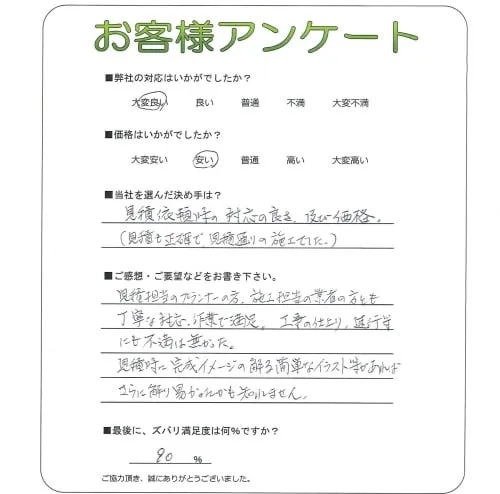 お客様アンケート
■弊社の対応はいかがでしたか？
大変良い 良い 普通 不満 大変不満
■価格はいかがでしたか？
大変安い 安い 普通 高い 大変高い
■当社を選んだ決め手は？
見積依頼時の対応の良さ、及び価格。
（見積も正確で、見積通りの施工でした。）
■ご感想・ご要望などをお書き下さい。
見積担当のプランナーの方、施工担当の業者の方とも
丁寧な対応、作業で満足。工事の仕上り、進行等
にも不満は無かった。
見積時に完成イメージの解る簡単なイラスト等があれば
さらに解り易かったかも知れません。
■最後に、ズバリ満足度は何%ですか？
90 %
ご協力頂き、誠にありがとうございました。